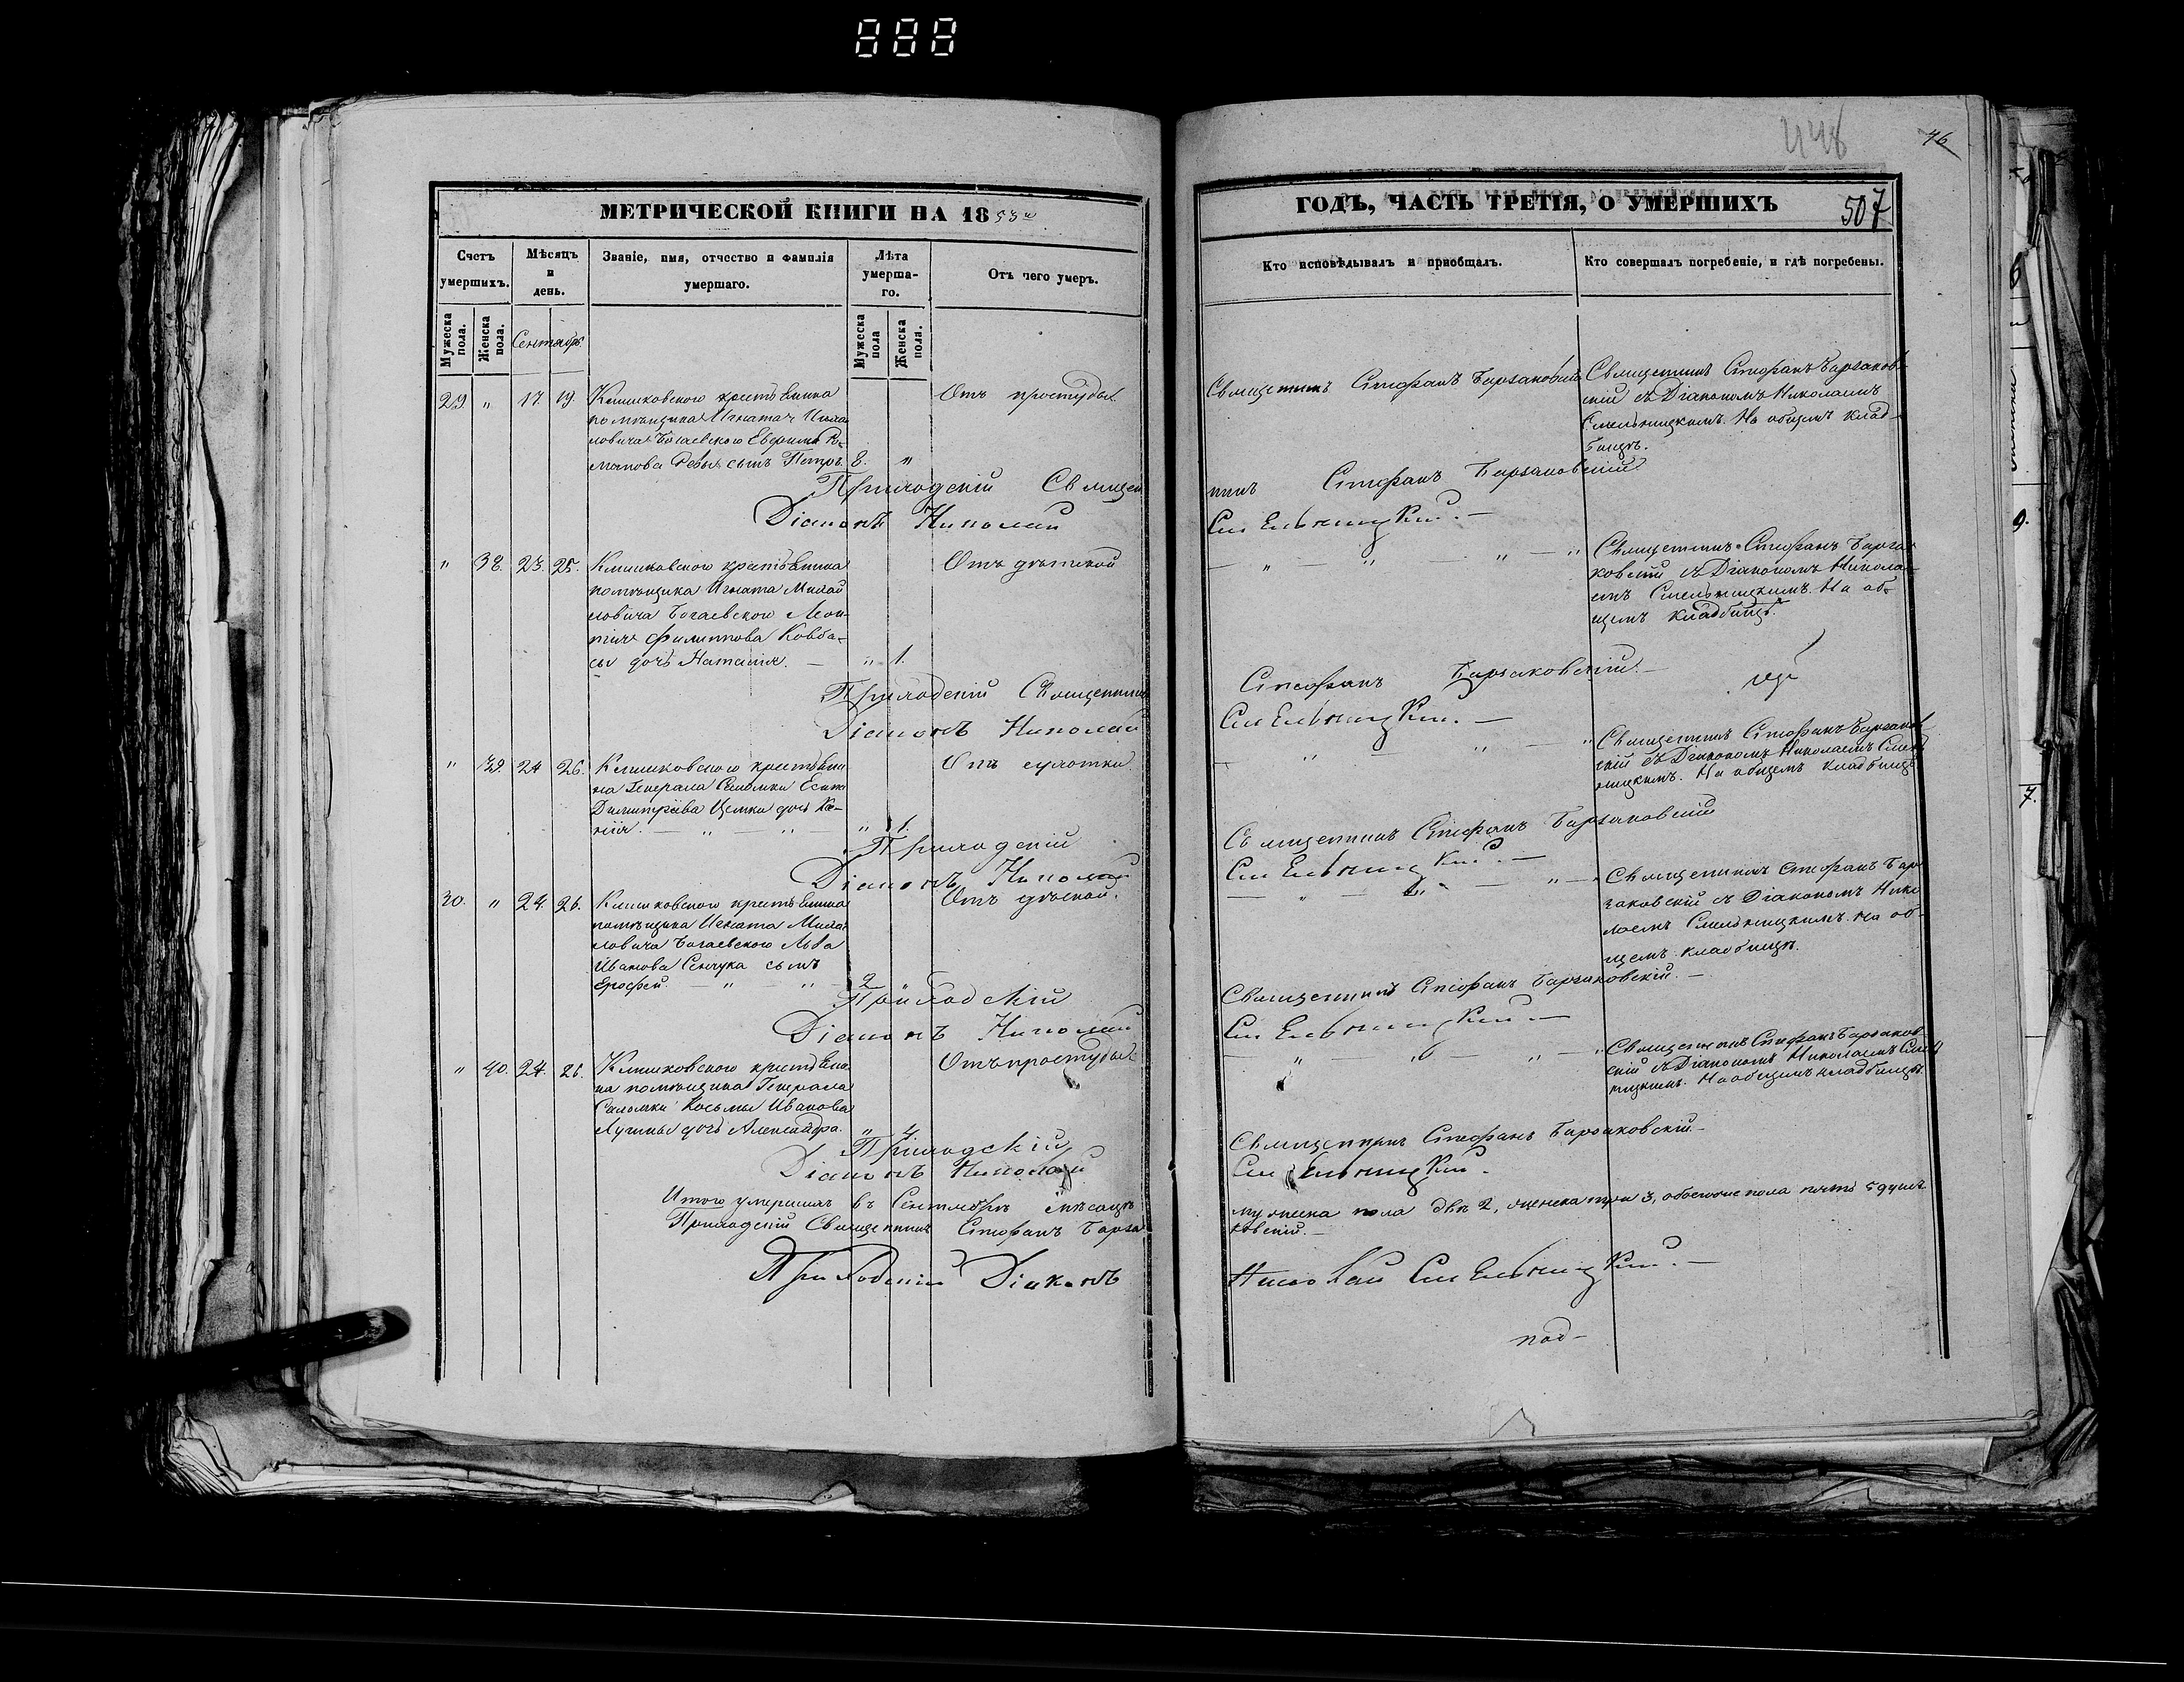 888
448
76
МЕТРИЧЕСКОЙ КНИГИ НА 1853й
ГОДЪ, ЧАСТЬ ТРЕТІЯ, О УМЕРШИХЪ
507
Счетъ умершихъ.
Мѣсяцъ и день.
Званіе, имя, отчество и фамилія умершаго.
Лѣта умерша-
го.
Отъ чего умеръ.
Кто исповѣдывалъ и пріобщалъ.
Кто совершалъ погребеніе, и гдѣ погребены.
Мужеска пола.
Женска пола.
Сентябрь
Мужеска пола
Женска пола.
29. " 17. 19.
Клишковского крестьянина
помѣщика Игната Михаи
ловича Богаевского Евфима Ро-
манова сынъ Петръ. 8. "
Отъ простуды
Священникъ Стефанъ Барзаковскій
Священникъ Стефанъ Барзаков-
скій съ Діакономъ Николаемъ
Смельницкимъ. На общемъ клад-
бищѣ.
Приходскій Священ
никъ Стефанъ Барзаковскій
Діаконъ Николай
Смельницкій.
" 38. 23. 25.
Клишковского крестьянина
помѣщика Игната Михай
ловича Богаевского Леон-
тія Филиппова Ковба-
сы дочь Наталія. " 1.
Отъ дѣтской
Священникъ Стефанъ Барза-
ковскій съ Діакономъ Никола-
емъ Смельницкимъ. На об-
щемъ кладбищѣ.
Приходскій Священникъ
Стефанъ Барзаковскій.
Діаконъ Николай
Смельницкій.
" 39. 24 26.
Клишковского крестьяни-
на Генерала Саломки
Димитріева дочь Ксе-
нія. " " " 1.
Отъ сухотки
Священникъ Стефанъ Барзаков
скій съ Діакономъ Николаемъ Смель
ницкимъ. На общемъ кладбищѣ
Приходскій
Священникъ Стефанъ Барзаковскій
Діаконъ Николай
Смельницкій.
30. " 24. 26.
Клишковского крестьянина
помѣщика Игната Михай
ловича Богаевского Льва
Иванова Сенчука сынъ
Ерофей. " " 2 "
Отъ дѣтской.
Священникъ Стефанъ Бар
заковскій съ Діакономъ Нико
лаемъ Смельницкимъ. На об-
щемъ кладбищѣ.
Приходскій
Священникъ Стефанъ Барзаковскій.
Діаконъ Николай
Смельницкій
" 40. 24. 26.
Клишковского крестьяни-
на помѣщика Генерала
Саломки Косьмы Иванова
Лучины дочь Александра. " 4.
Отъ простуды
Священникъ Стефанъ Барзаков-
скій съ Діакономъ Николаемъ Смель
ницкимъ. На общемъ кладбищѣ.
Приходскій
Священникъ Стефанъ Барзаковскій.
Діаконъ Николай
Смельницкій.
Итого умершихъ въ Сентябрѣ мѣсяцѣ
мужеска пола два 2, женска три 3, обоего пола пять 5 душъ
Приходскій Священникъ Стефанъ Барза
ковскій.
Приходскій Діаконъ
Николай Смельницкій.
под-